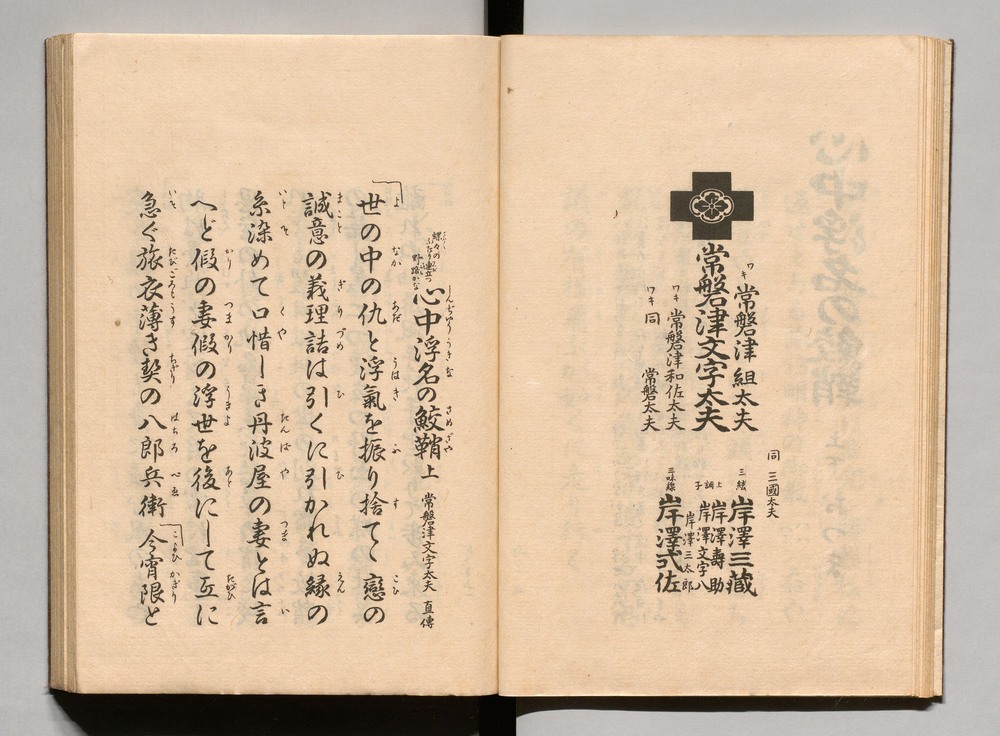 同 三國太夫
ワキ 常磐津組太夫
常磐津文字太夫
ワキ 常磐津和佐太夫
ワキ 同 常磐太夫
三絃 岸澤三藏
岸澤壽助
上調子 岸澤文字八
岸澤三太郎
三味線 岸澤式佐
蝶々の
野路かな
心中浮名の鮫鞘 上 常磐津文字太夫 直傳
世の中の仇と浮氣を振り捨てゝ戀の
誠意の義理詰は引くに引かれぬ縁の
糸染めて口惜しき丹波屋の妻とは言
へど假の妻假の浮世を後にして互に
急ぐ旅衣薄き契の八郎兵衛今宵限と